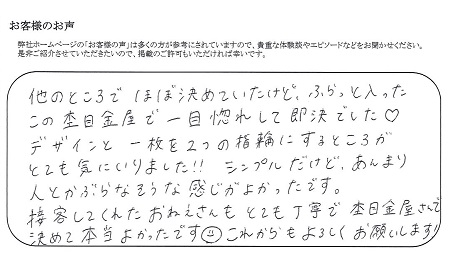 お客様のお声
弊社ホームページの「お客様の声」は多くの方が参考にされていますので、貴重な体験談やエピソードなどをお聞かせください。
是非ご紹介させていただきたいので、掲載のご許可もいただければ幸いです。
他のところで ほぼ決めていたけど、ふらっと入った
この杢目金屋で一目惚れして即決でした♡
デザインと一枚を2つの指輪にするところが
とても気にいりました!! シンプルだけど、あんまり
人とかぶらなそうな感じがよかったです。
接客してくれたおねえさんも とても丁寧で 杢目金屋さんで
決めて本当よかったです☺ これからもよろしくお願いします!